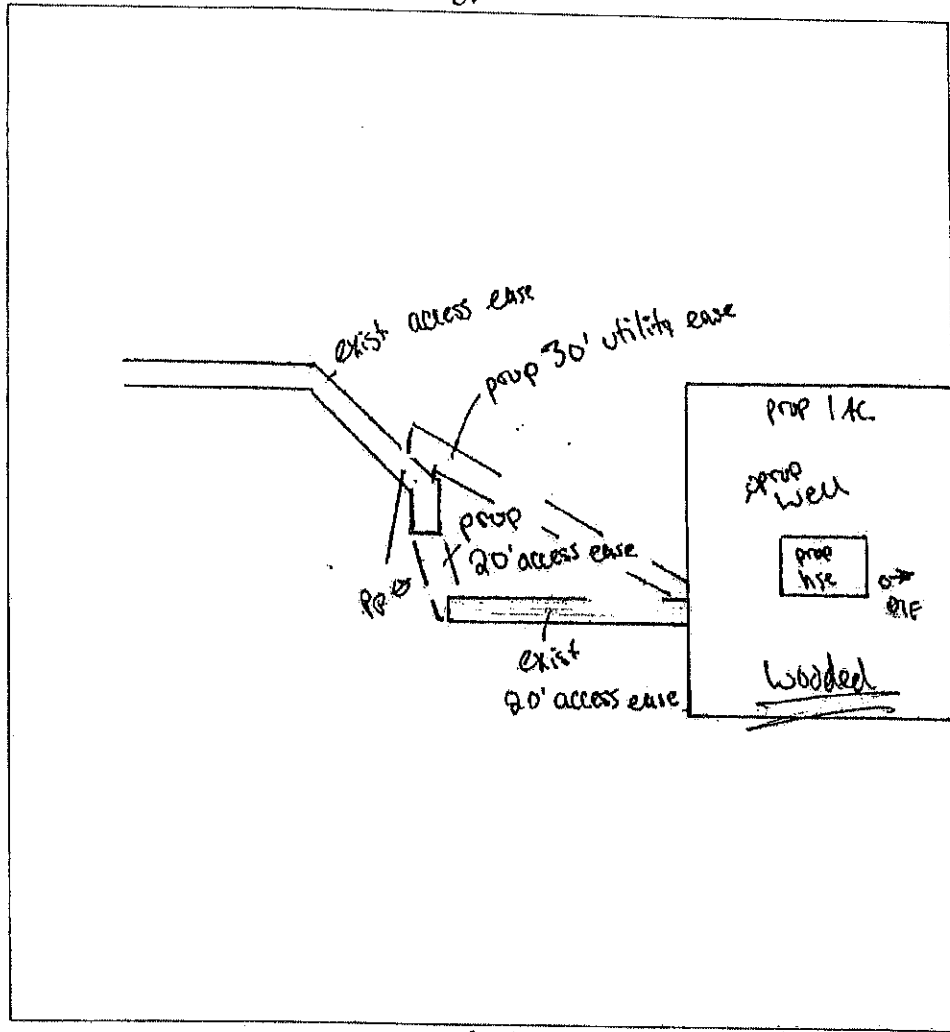 exist access ease
prop 30' utility ease
prop 1 AC.
prop
well
prop
hse
prop
20' access ease
PP
exist
20' access ease
wooded